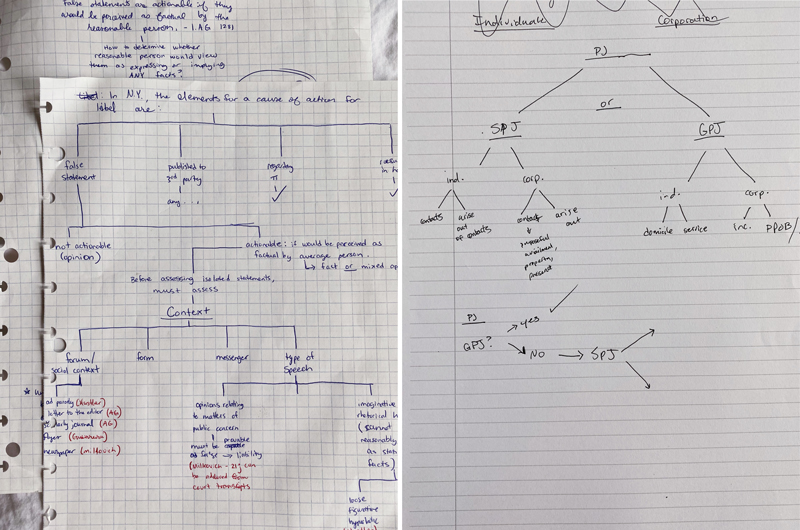 False statements are actionable if they
would be perceived as factual by the
reasonable person. - I.AG 1281
How to determine whether
reasonable person would view
them as expressing or implying
ANY facts?
In N.Y., the elements for a cause of action for
libel are:
false
statement
published to
3rd party
any
regarding
π
✓
not actionable
(opinion)
actionable: if would be perceived as
factual by average person.
↳ fact or mixed op
Before assessing isolated statements,
must assess
Context
forum/
social context
form
messenger
type of
speech
ad parody (Hustler)
letter to the editor (AG)
daily journal (AG)
flyer
newspaper
opinions relating
to matters of
public concern
must be provable
as false → liability
be adduced from
court transcripts
imaginative
rhetorical h
(cannot
reasonably
as stat
facts)
loose
figurative
hyperbolic
Individuals
Corporation
PJ
or
SPJ
GPJ
ind.
corp.
ind.
corp.
contacts
arise
out
of contacts
contacts
arise
out
property,
present
domicile
service
inc.
PPOB/
PJ
GPJ?
→ yes
NO → SPJ